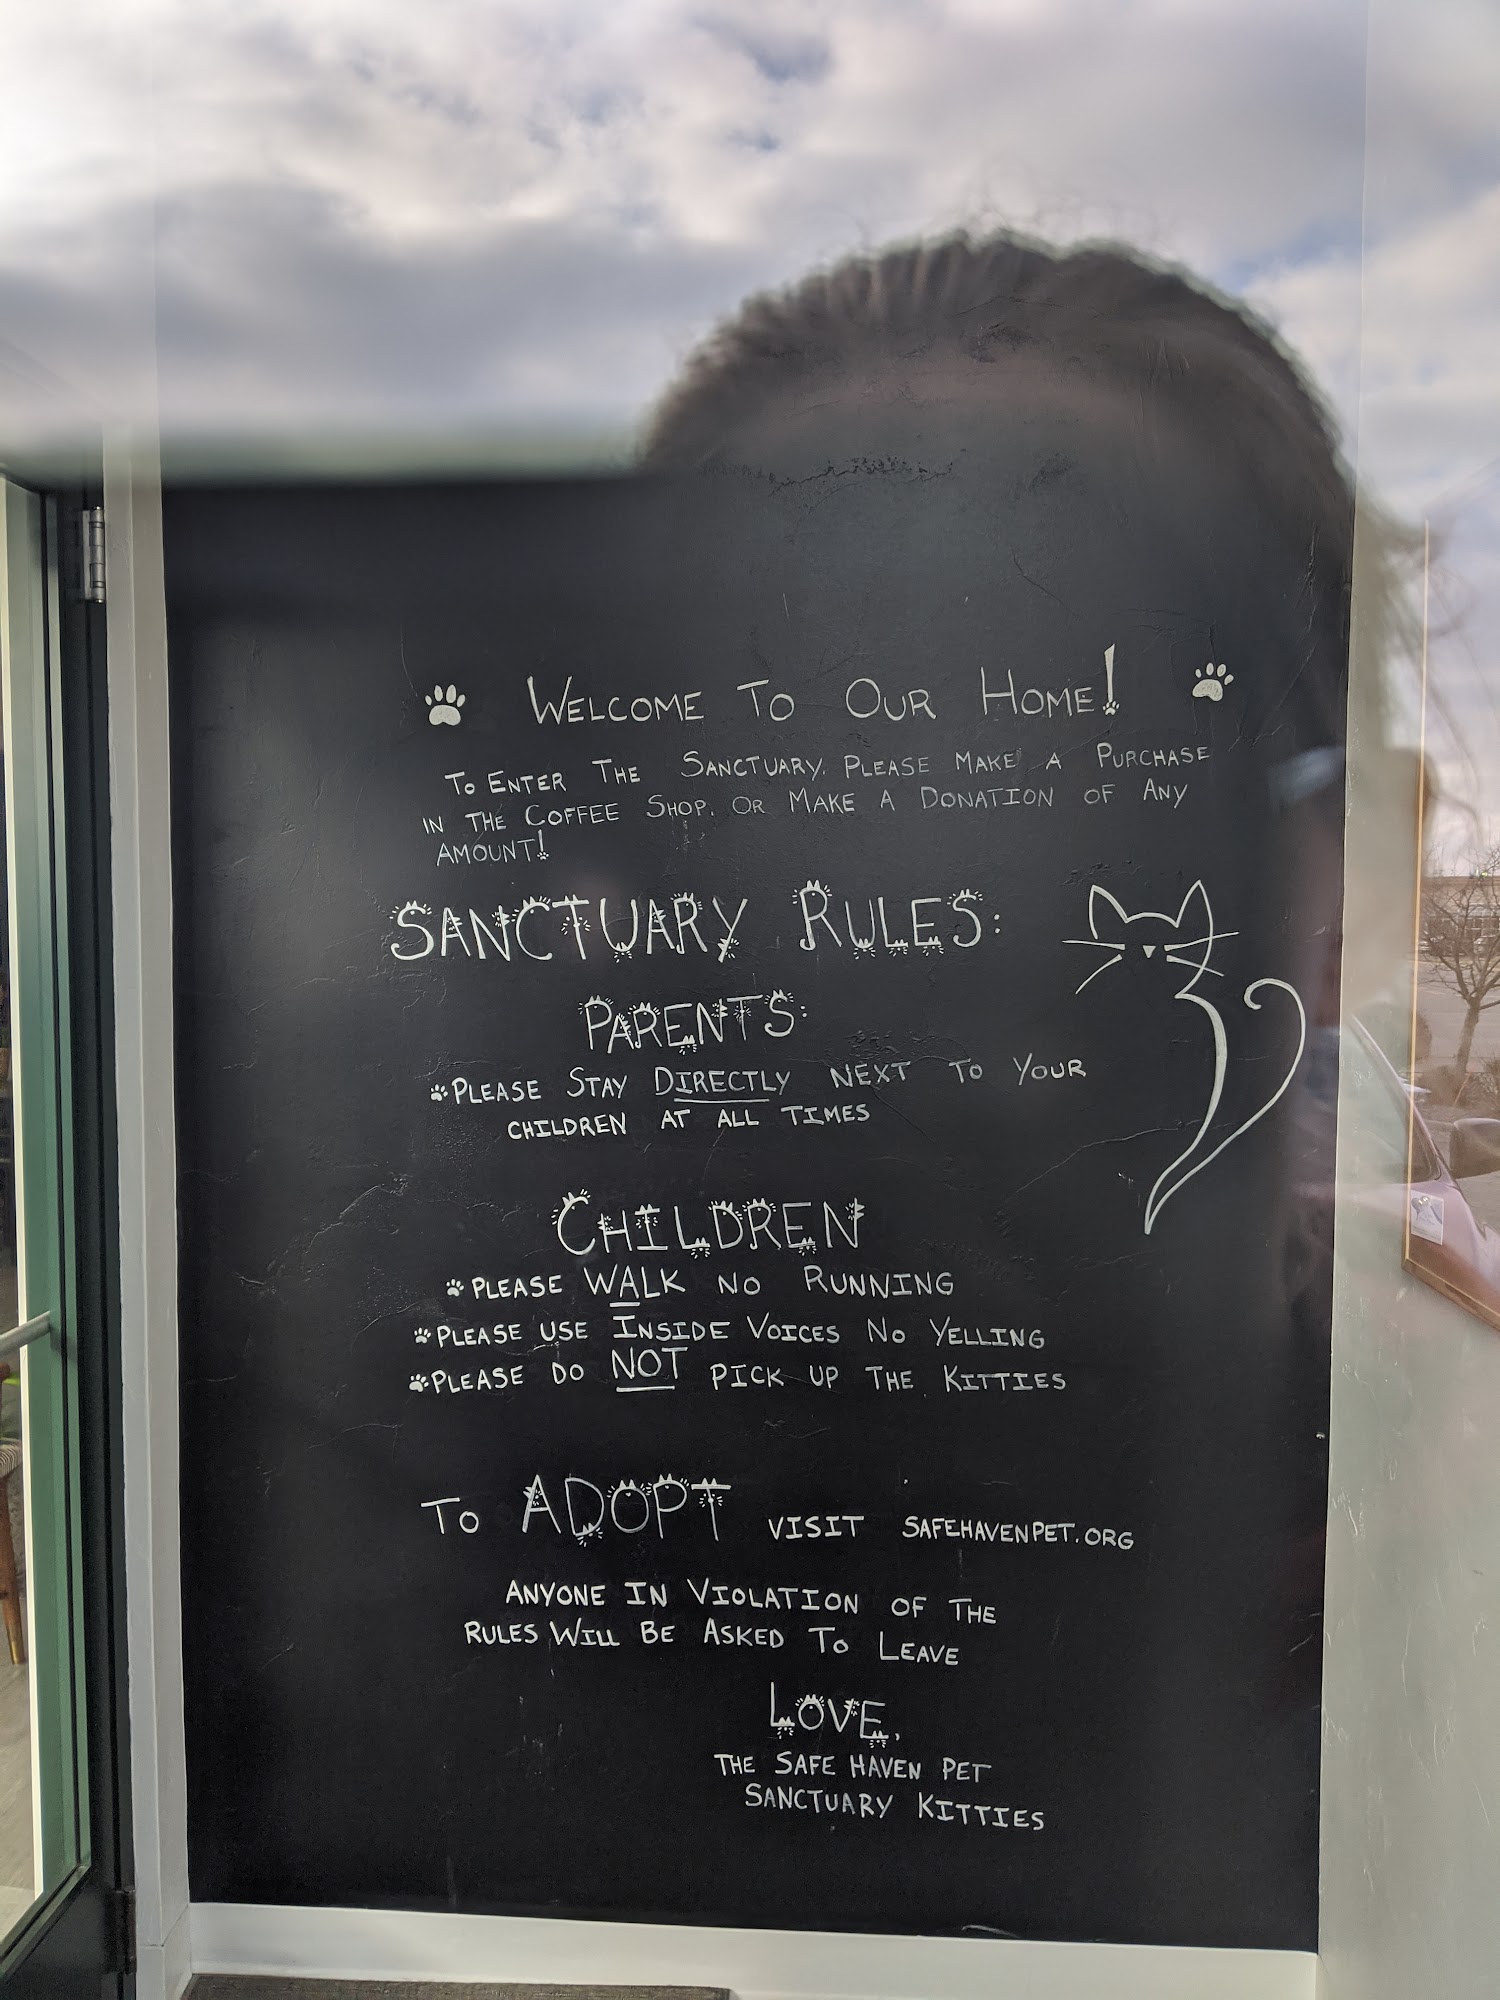 Welcome To Our Home!
To Enter The Sanctuary, Please make a Purchase
in the Coffee Shop, or Make a Donation of Any
amount!
Sanctuary Rules:
Parents:
Please Stay Directly next to Your
children at all times
Children
Please Walk no Running
Please use Inside Voices No Yelling
Please do NOT pick up the Kitties
To ADOPT visit safehavenpet.org
Anyone in Violation of the
rules Will Be Asked To Leave
Love,
The Safe Haven Pet
Sanctuary Kitties